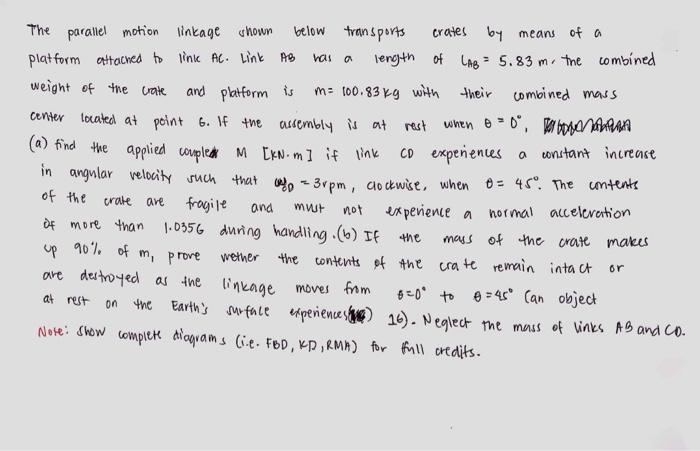 The parallel motion linkage shown below transports crates by means of a
platform attached to link AC. Link AB has a length of LAB = 5.83 m. The combined
weight of the crate and platform is m= 100.83 kg with their combined mass
center located at point G. If the assembly is at rest when θ = 0°,
(a) find the applied couple M [kN·m] if link CD experiences a constant increase
in angular velocity such that = 3rpm, clockwise, when θ = 45°. The contents
of the crate are fragile and must not experience a normal acceleration
of more than 1.035G during handling. (b) If the mass of the crate makes
up 90% of m, prove wether the contents of the crate remain intact or
are destroyed as the linkage moves from θ=0° to θ=45° (an object
at rest on the Earth's surface experiences 1G). Neglect the mass of links AB and CD.
Note: Show complete diagrams (i.e. FBD, KD, RMA) for full credits.